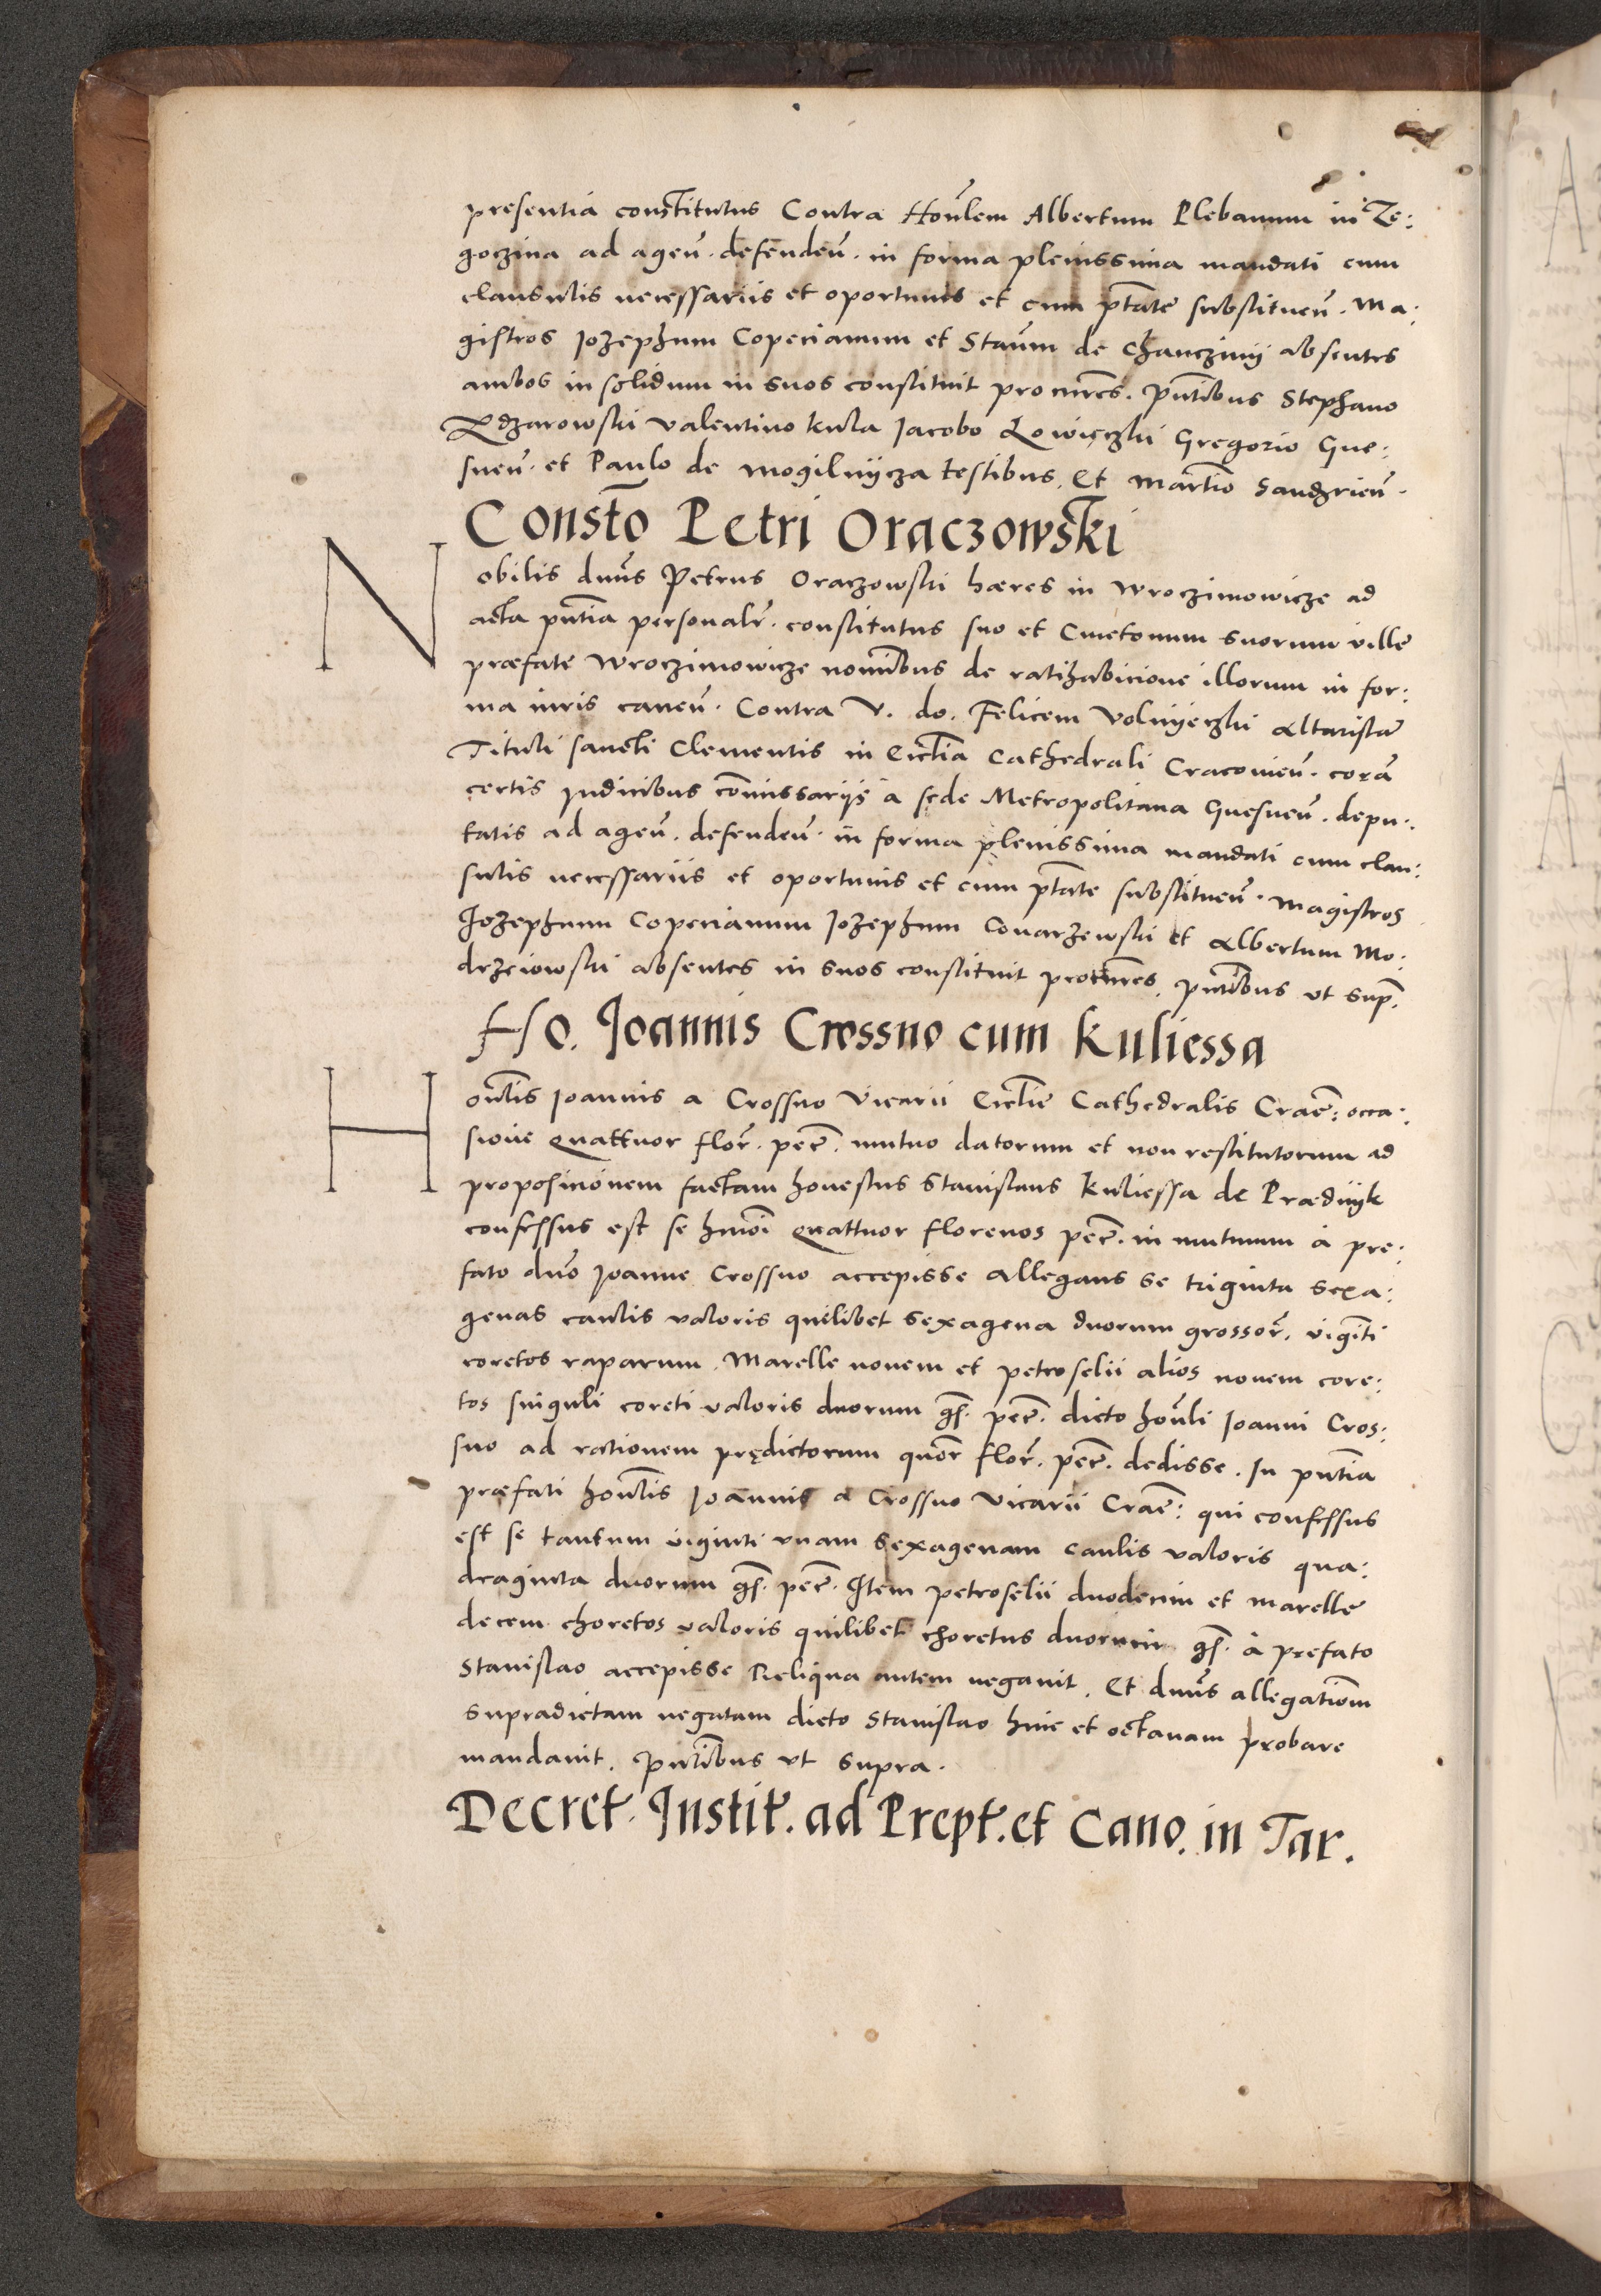 presentia constitutus Contra Hon̄lem Albertum Plebanum in Ze:
goczina ad agen̄. defenden̄. in forma plenissima mandati cum
clausulis necessariis et oportunis et cum ptāte substituen̄. Ma:
gistros Jozephum Coperianum et Staūm de Chanczinij absentes
ambos in solidum in suos constituit procures̄. pn̄tibus Stephano
Rdzarowski Valentino Kula Jacobo Lowiczki Gregorio Gne:
snen̄. et Paulo de Mogilnijcza testibus. Et Martīo Sandzrien̄.
Constō Petri Oraczowski
Nobilis dnūs Petrus Oraczowski hæres in Wroczimowicze ad
acta pn̄tia personalr̄. constitutus suo et Cmetonum suorum ville
præfate Wroczimowicze nomīnibus de ratihabicione illorum in for:
ma iuris caven̄. Contra V. do. Felicem Volnijeczki Altaristā
Tituli sancti Clementis in Eccl̄ia Cathedrali Cracovien̄. corā
certis Judicibus com̄issariis à sede Metropolitana Gnesnen̄. depu:
tatis ad agen̄. defenden̄. in forma plenissima mandati cum clau:
sulis necessariis et oportunis et cum ptāte substituen̄. Magistros
Jozephum Coperianum Jozephum Conarzewski et Albertum Mo:
drzeiowski absentes in suos constituit procures̄. pn̄tibus ut sup̄.
Ho. Joannis Crossno cum Kuliessa
Hon̄lis Joannis a Crossno Vicarii Eccl̄ie Cathedralis Crac̄: occa:
sione quattuor flor̄. pec̄. mutuo datorum et non restitutorum ad
proposicionem factam honestus Stanislaus Kuliessa de Prædnijk
confessus est se hmōi quattuor florenos pec̄. in mutuum à pre:
fato dn̄o Joanne Crossno accepisse allegans se triginta sexa:
genas caulis valoris quelibet sexagena duorum grossor̄. viginti
coretos raparum. Marelle novem et petroselii alios novem core:
tos singuli coreti valoris duorum gs̄. pec̄. dicto hon̄li Joanni Cros:
sno ad rationem prędictorum quor̄ flor̄. pec̄. dedisse. In pn̄tia
præfati hon̄lis Joannis a Crossno Vicarii Crac̄: qui confessus
est se tantum viginti unam sexagenam caulis valoris qua:
draginta duorum gs̄. pec̄. Item petroselii duodecim et marelle
decem choretos valoris quilibet choretus duorum gs̄. à prefato
Stanislao accepisse Reliqua autem negavit. Et dnūs allegationem
supradictam negatam dicto Stanislao hinc et octavam probare
mandavit. pn̄tibus ut supra.
Decret. Instit. ad Prept. et Cano. in Tar.